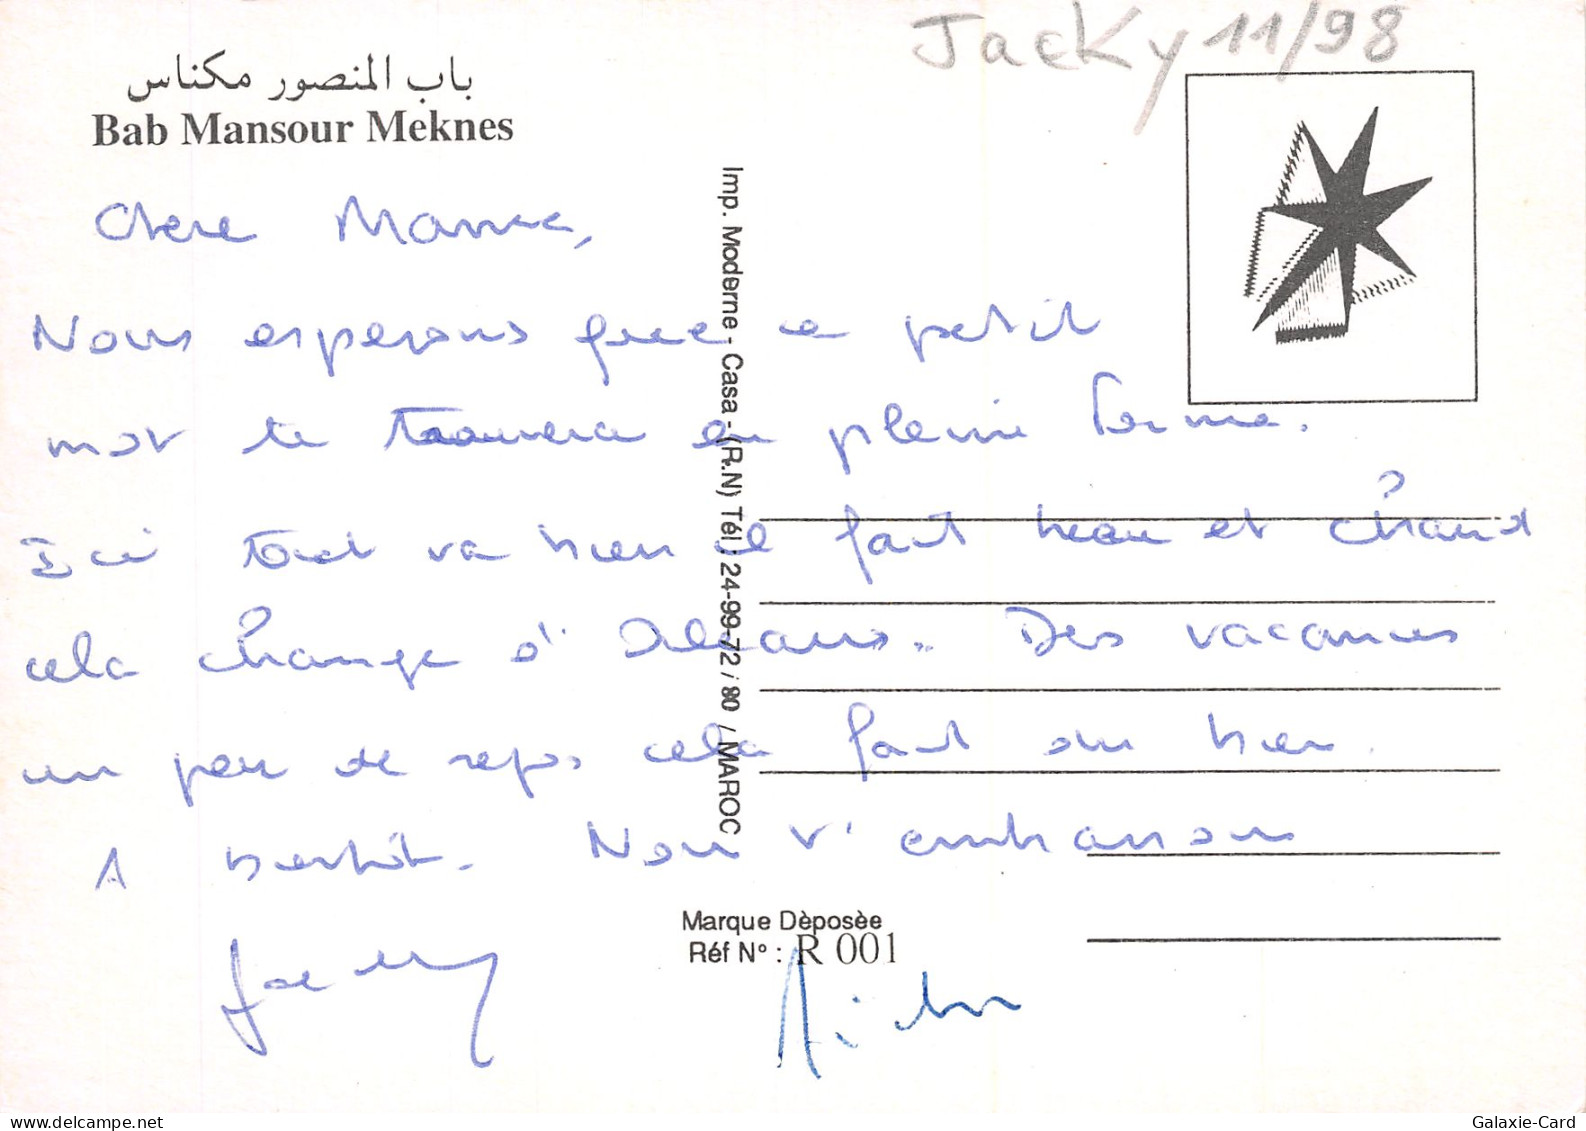 Jacky 11/98
باب المنصور مكناس
Bab Mansour Meknes
Chere Mamie,
Nous esperons que ce petit
mot te trouvera en pleine forme.
Ici tout va bien il fait beau et chaud
cela change d'Orleans.. Des vacances
un peu de repos cela fait du bien.
A bientôt. Nous t'embrassons
Jacky
Imp. Moderne - Casa - (R.N) Tél : 24-99-72 / 80 / MAROC
Marque Dèposèe
Réf N° : R 001
www.delcampe.net
Galaxie-Card